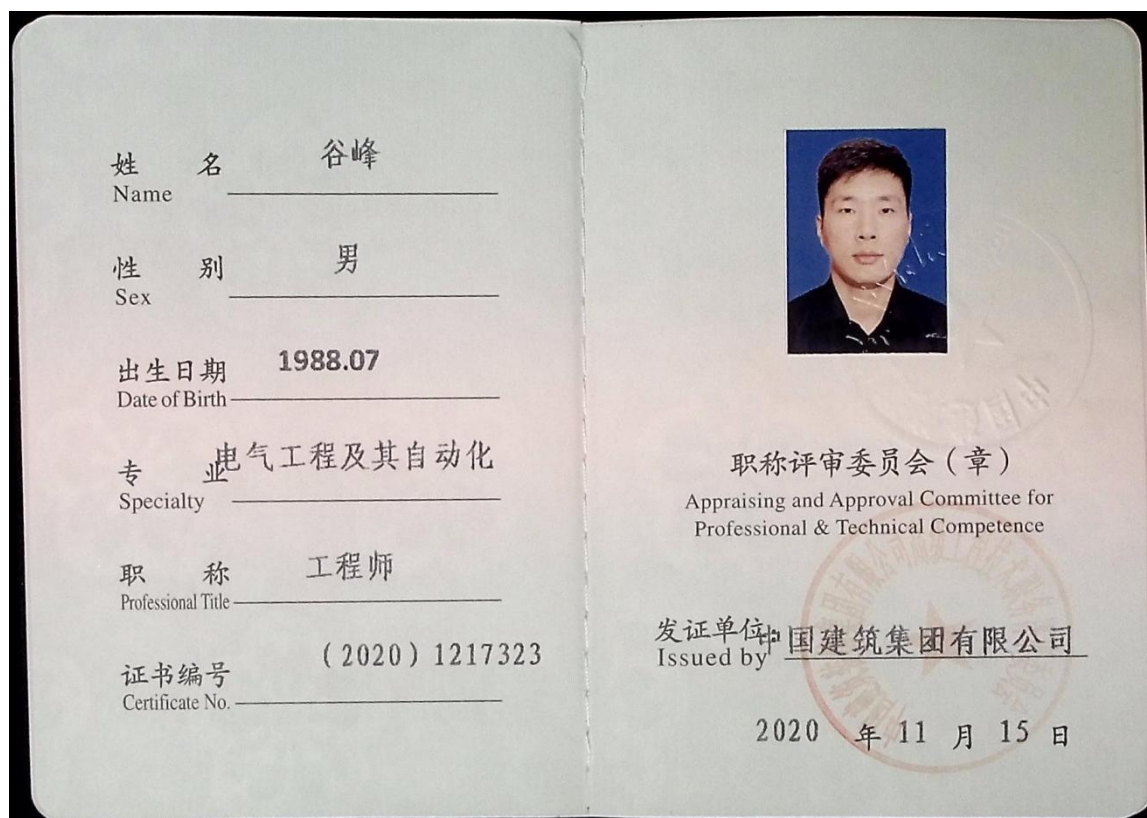 姓 名 谷峰
Name
性 别 男
Sex
出生日期 1988.07
Date of Birth
专 业 电气工程及其自动化
Specialty
职 称 工程师
Professional Title
证书编号 (2020) 1217323
Certificate No.
职称评审委员会（章）
Appraising and Approval Committee for
Professional & Technical Competence
发证单位 中国建筑集团有限公司
Issued by
2020 年 11 月 15 日